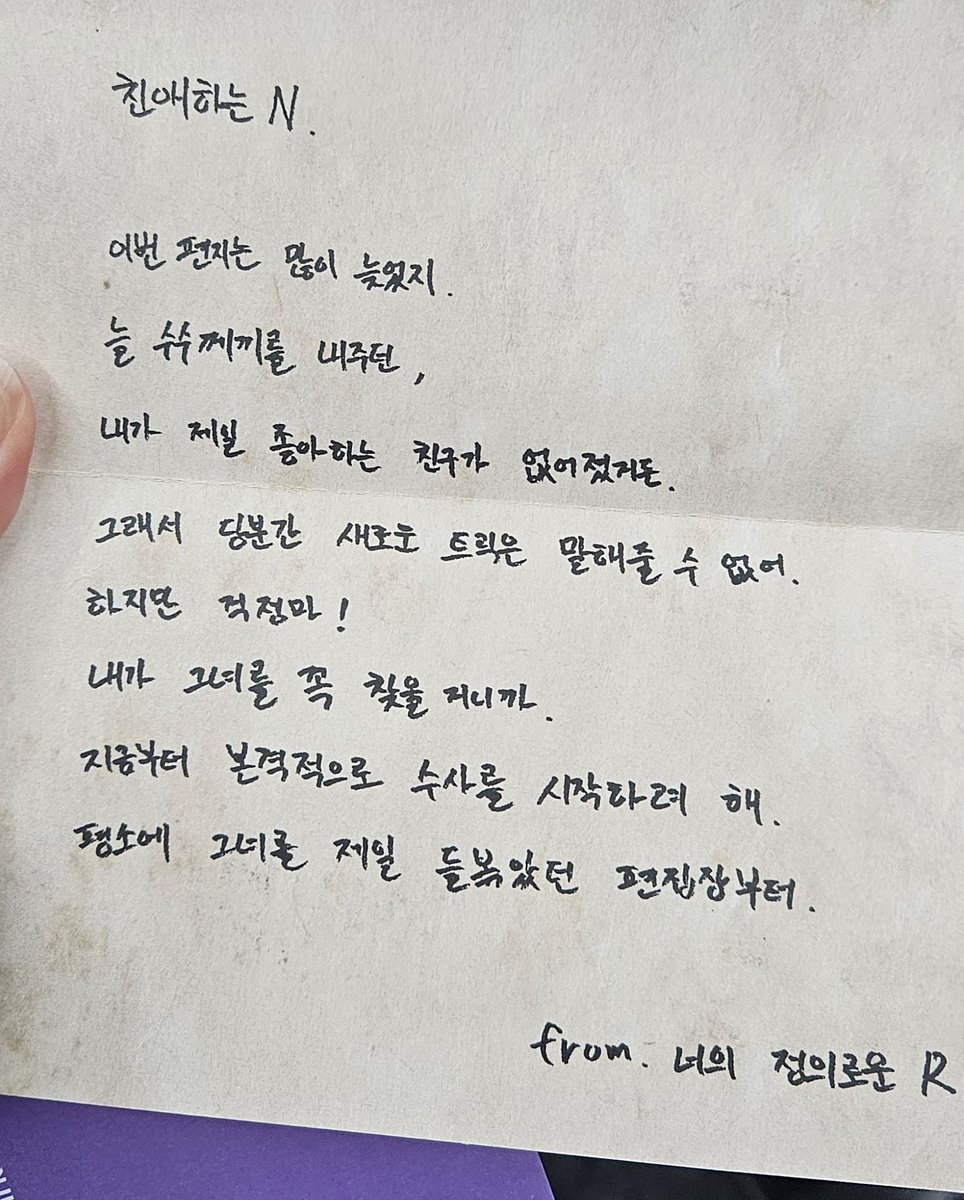 친애하는 N.
이번 편지는 많이 늦었지.
늘 수수께끼를 내주던,
내가 제일 좋아하는 친구가 없어졌거든.
그래서 당분간 새로운 트릭은 말해줄 수 없어.
하지만 걱정마!
내가 그녀를 꼭 찾을 거니까.
지금부터 본격적으로 수사를 시작하려 해.
평소에 그녀를 제일 들볶았던 편집장부터.
from. 너의 정의로운 R